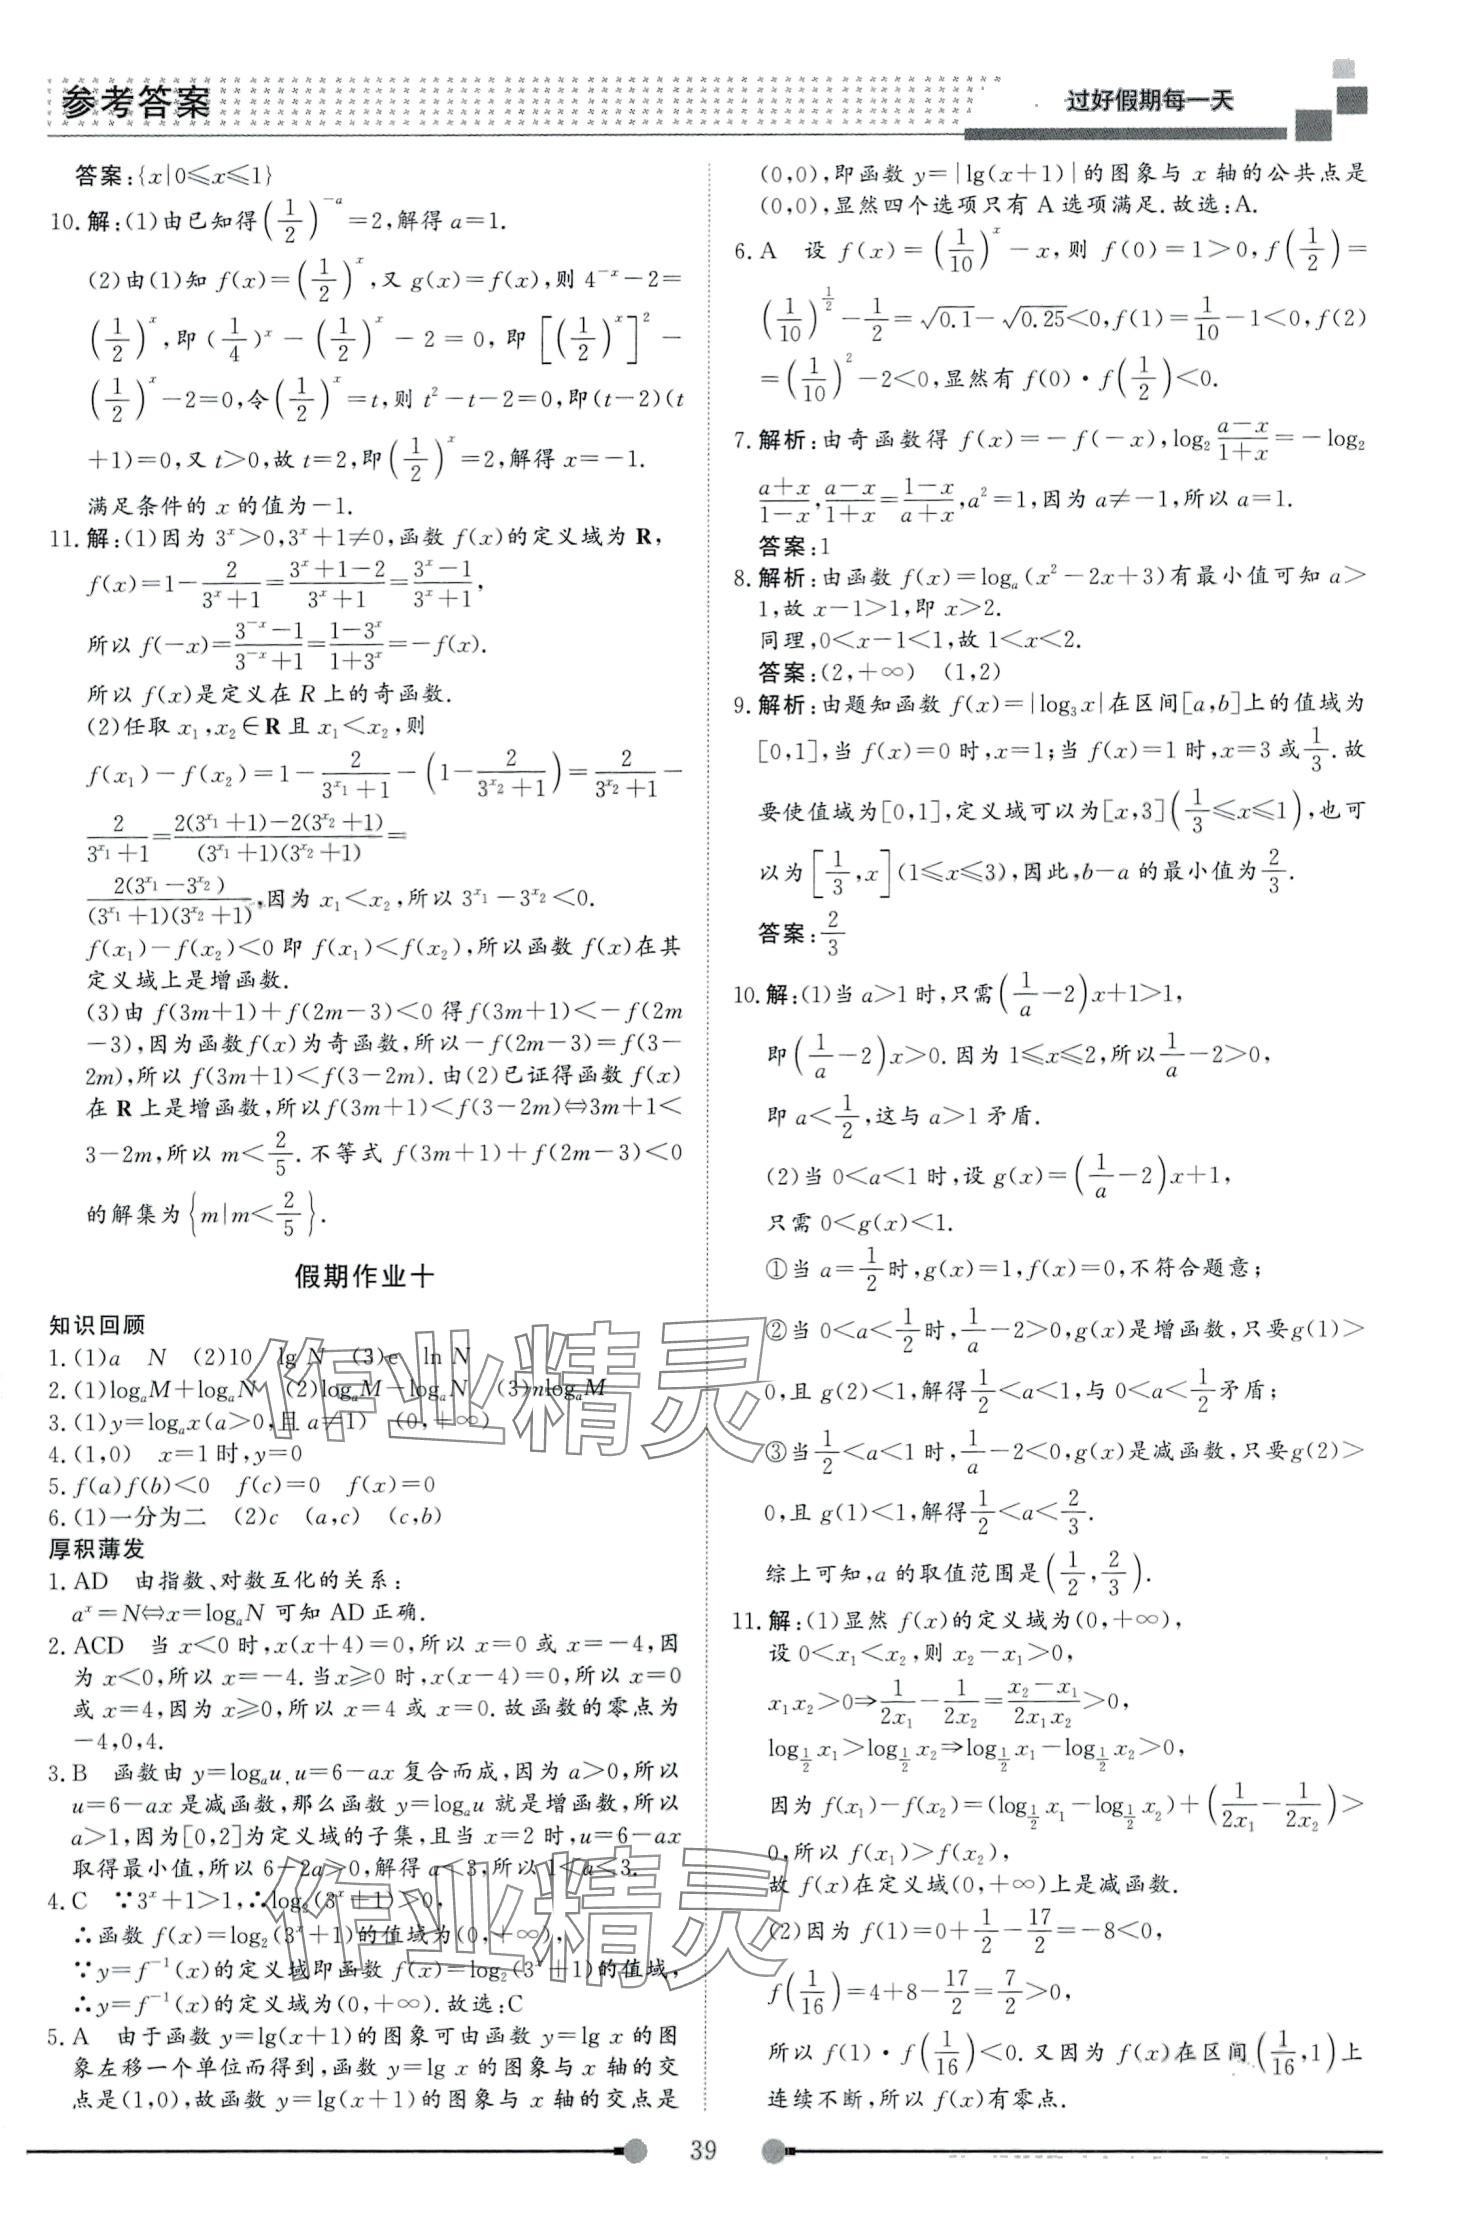 参考答案
过好假期每一天
答案:{x|0≤x≤1}
10.解:(1)由已知得(1/2)^{-a}=2,解得 a=1.
(2)由(1)知 f(x)=(1/2)^x,又 g(x)=f(x),则 4^{-x}-2=
(1/2)^x,即(1/4)^x-(1/2)^x-2=0,即[(1/2)^x]^2-
(1/2)^x-2=0,令(1/2)^x=t,则 t^2-t-2=0,即(t-2)(t
+1)=0,又 t>0,故 t=2,即(1/2)^x=2,解得 x=-1.
满足条件的 x 的值为-1.
11.解:(1)因为 3^x>0,3^x+1≠0,函数 f(x)的定义域为 R,
f(x)=1-2/(3^x+1)=(3^x+1-2)/(3^x+1)=(3^x-1)/(3^x+1),
所以 f(-x)=(3^{-x}-1)/(3^{-x}+1)=(1-3^x)/(1+3^x)=-f(x).
所以 f(x)是定义在 R 上的奇函数.
(2)任取 x₁,x₂∈R 且 x₁<x₂,则
f(x₁)-f(x₂)=1-2/(3^{x₁}+1)-(1-2/(3^{x₂}+1))=2/(3^{x₂}+1)-
2/(3^{x₁}+1)=(2(3^{x₁}+1)-2(3^{x₂}+1))/((3^{x₁}+1)(3^{x₂}+1))=
2(3^{x₁}-3^{x₂})/((3^{x₁}+1)(3^{x₂}+1)),因为 x₁<x₂,所以 3^{x₁}-3^{x₂}<0.
f(x₁)-f(x₂)<0 即 f(x₁)<f(x₂),所以函数 f(x)在其
定义域上是增函数.
(3)由 f(3m+1)+f(2m-3)<0 得 f(3m+1)<-f(2m
-3),因为函数 f(x)为奇函数,所以-f(2m-3)=f(3-
2m),所以 f(3m+1)<f(3-2m).由(2)已证得函数 f(x)
在 R 上是增函数,所以 f(3m+1)<f(3-2m)⇔3m+1<
3-2m,所以 m<2/5.不等式 f(3m+1)+f(2m-3)<0
的解集为{m|m<2/5}.
假期作业十
知识回顾
1.(1)a N (2)10 lg N (3)e ln N
2.(1)logₐM+logₐN (2)logₐM-logₐN (3)nlogₐM
3.(1)y=logₐx(a>0,且 a≠1) (0,+∞)
4.(1,0) x=1 时,y=0
5.f(a)f(b)<0 f(c)=0 f(x)=0
6.(1)一分为二 (2)c (a,c) (c,b)
厚积薄发
1.AD 由指数、对数互化的关系:
a^x=N⇔x=logₐN 可知 AD 正确.
2.ACD 当 x<0 时,x(x+4)=0,所以 x=0 或 x=-4,因
为 x<0,所以 x=-4.当 x≥0 时,x(x-4)=0,所以 x=0
或 x=4,因为 x≥0,所以 x=4 或 x=0.故函数的零点为
-4,0,4.
3.B 函数由 y=logₐu,u=6-ax 复合而成,因为 a>0,所以
u=6-ax 是减函数,那么函数 y=logₐu 就是增函数,所以
a>1,因为[0,2]为定义域的子集,且当 x=2 时,u=6-ax
取得最小值,所以 6-2a>0,解得 a<3,所以 1<a<3.
4.C ∵3^x+1>1,∴log₂(3^x+1)>0,
∴函数 f(x)=log₂(3^x+1)的值域为(0,+∞),
∵y=f⁻¹(x)的定义域即函数 f(x)=log₂(3^x+1)的值域,
∴y=f⁻¹(x)的定义域为(0,+∞).故选:C
5.A 由于函数 y=lg(x+1)的图象可由函数 y=lg x 的图
象左移一个单位而得到,函数 y=lg x 的图象与 x 轴的交
点是(1,0),故函数 y=lg(x+1)的图象与 x 轴的交点是
(0,0),即函数 y=|lg(x+1)|的图象与 x 轴的公共点是
(0,0),显然四个选项只有 A 选项满足.故选:A.
6.A 设 f(x)=(1/10)^x-x,则 f(0)=1>0,f(1/2)=
(1/10)^{1/2}-1/2=√0.1-√0.25<0,f(1)=1/10-1<0,f(2)
=(1/10)^2-2<0,显然有 f(0)·f(1/2)<0.
7.解析:由奇函数得 f(x)=-f(-x),log₂(a-x)/(1+x)=-log₂
(a+x)/(1-x),(a-x)/(1+x)=(1-x)/(a+x),a²=1,因为 a≠-1,所以 a=1.
答案:1
8.解析:由函数 f(x)=logₐ(x²-2x+3)有最小值可知 a>
1,故 x-1>1,即 x>2.
同理,0<x-1<1,故 1<x<2.
答案:(2,+∞) (1,2)
9.解析:由题知函数 f(x)=|log₃x|在区间[a,b]上的值域为
[0,1],当 f(x)=0 时,x=1;当 f(x)=1 时,x=3 或1/3.故
要使值域为[0,1],定义域可以为[x,3](1/3≤x≤1),也可
以为[1/3,x](1≤x≤3),因此,b-a 的最小值为2/3.
答案:2/3
10.解:(1)当 a>1 时,只需(1/a-2)x+1>1,
即(1/a-2)x>0.因为 1≤x≤2,所以1/a-2>0,
即 a<1/2,这与 a>1 矛盾.
(2)当 0<a<1 时,设 g(x)=(1/a-2)x+1,
只需 0<g(x)<1.
①当 a=1/2时,g(x)=1,f(x)=0,不符合题意;
②当 0<a<1/2时,1/a-2>0,g(x)是增函数,只要g(1)>
0,且 g(2)<1,解得1/2<a<1,与 0<a<1/2矛盾;
③当1/2<a<1 时,1/a-2<0,g(x)是减函数,只要g(2)>
0,且 g(1)<1,解得1/2<a<2/3.
综上可知,a 的取值范围是(1/2,2/3).
11.解:(1)显然 f(x)的定义域为(0,+∞),
设 0<x₁<x₂,则 x₂-x₁>0,
x₁x₂>0⇒1/(2x₁)-1/(2x₂)=(x₂-x₁)/(2x₁x₂)>0,
log_{1/2}x₁>log_{1/2}x₂⇒log_{1/2}x₁-log_{1/2}x₂>0,
因为 f(x₁)-f(x₂)=(log_{1/2}x₁-log_{1/2}x₂)+(1/(2x₁)-1/(2x₂))>
0,所以 f(x₁)>f(x₂),
故 f(x)在定义域(0,+∞)上是减函数.
(2)因为 f(1)=0+1/2-17/2=-8<0,
f(1/16)=4+8-17/2=7/2>0,
所以 f(1)·f(1/16)<0.又因为 f(x)在区间(1/16,1)上
连续不断,所以 f(x)有零点.
39
作业精灵
作业精灵